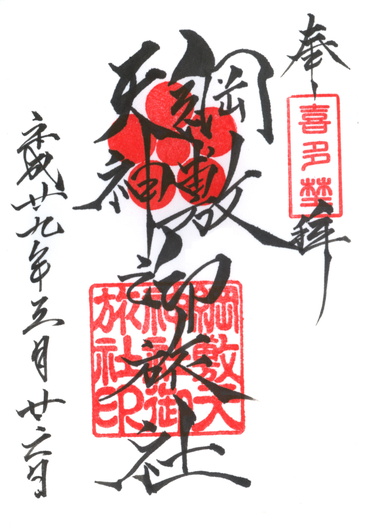 奉拝
喜多埜
綱敷
天神
御旅社
綱敷天
神社御
旅社印
平成廿九年三月廿六日